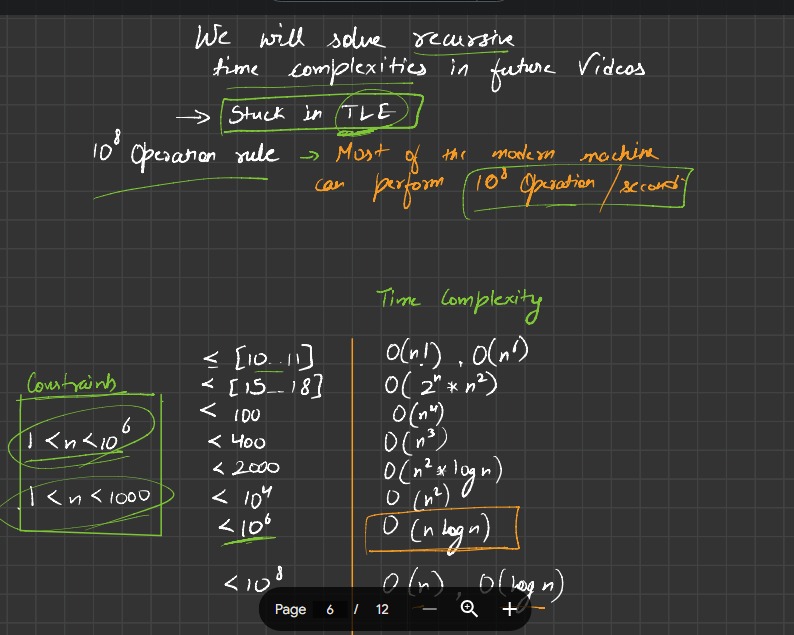 We will solve recursive
time complexities in future Videos
→ Stuck in TLE
10⁸ Operation rule → Most of the modern machine
can perform 10⁸ Operation / second
Time Complexity
≤ [10...11] O(n!) , O(n⁶)
Constraints < [15...18] O(2ⁿ * n²)
< 100 O(n⁴)
1 < n < 10⁶ < 400 O(n³)
< 2000 O(n² * log n)
1 < n < 1000 < 10⁴ O(n²)
< 10⁶ O(n log n)
< 10⁸ O(n) , O(log n)
Page 6 / 12 — +